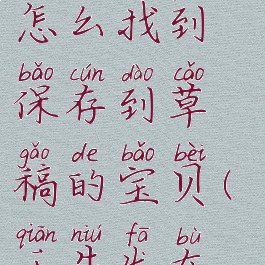 怎么找到
bǎo cún dào cǎo
保存到草
gǎo de bǎo bèi
稿的宝贝(
qiān niú fā bù